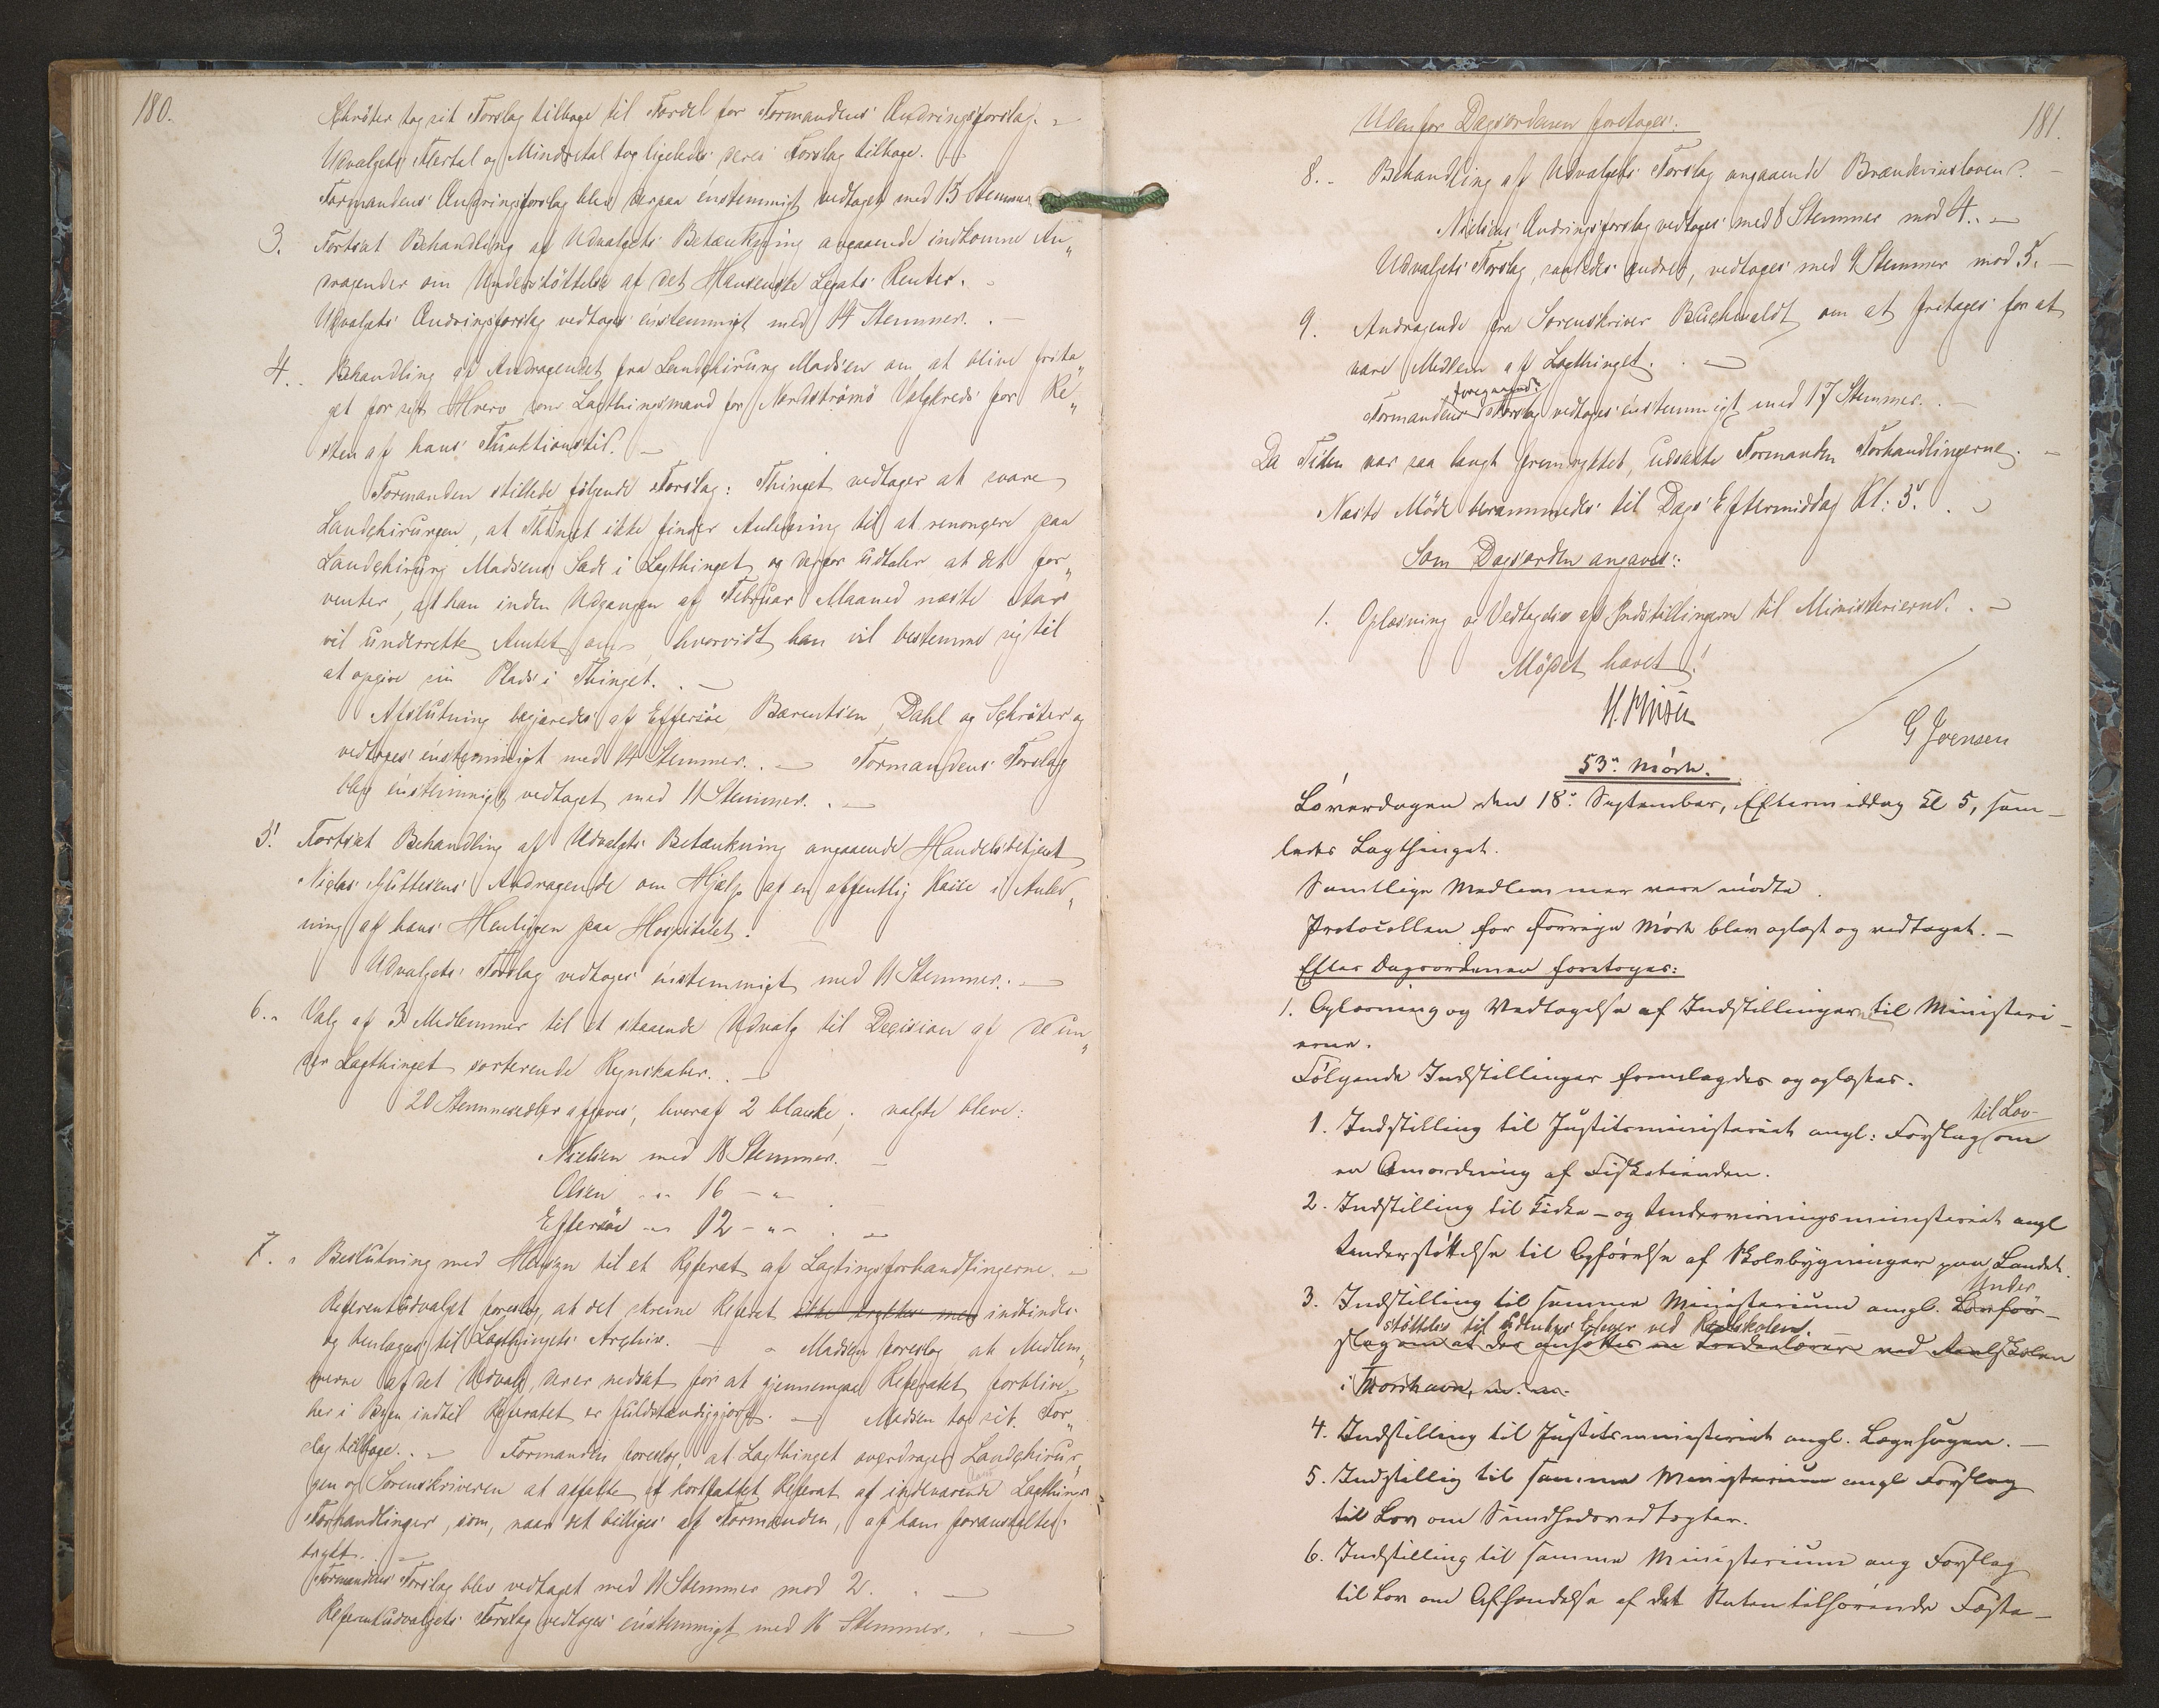 180.
Schröter tog sit Forslag tilbage til Fordel for Formandens Ændringsforslag. -
Udvalgets Flertal og Mindretal tog ligeledes deres Forslag tilbage. -
Formandens Ændringsforslag blev derpaa énstemmigt vedtaget med 15 Stemmer
3. Fortsat Behandling af Udvalgets Betænkning angaaende indkomne An„
dragender om Understöttelse af det Hansenske Legats Renter. -
Udvalgets Ændringsforslag vedtoges énstemmigt med 14 Stemmer. . -
4. . Behandling af Andragendet fra Landchirurg Madsen om at blive frita„
get for sit Hverv som Lagthingsmand for Nordströmö Valgkreds for Re„
sten af hans Funktionstid. -
Formanden stillede fölgende Forslag: Thinget vedtager at svare
Landchirurgen, at Thinget ikke finder Anledning til at renongere paa
Landchirurg Madsens Sæde i Lagthinget og derfor udtaler at det for„
venter, at han inden Udgangen af Februar Maaned næste Aar
vil underrette Amtet om, hvorvidt han vil bestemme sig til
at opgive sin Plads i Thinget. . -
Afslutning begjæredes af Effersöe, Bærentsen, Dahl og Schröter og
vedtoges énstemmigt med 14 Stemmer. . - Formandens Forslag
blev énstemmigt vedtaget med 11 Stemmer. . -
5. Fortsat Behandling af Udvalgets Betænkning angaaende Handelsbetjent
Niclas Guttesens Andragende om Hjælp af en offentlig Kasse i Anled„
ning af hans Henliggen paa Hospitalet. -
Udvalgets Forslag vedtoges énstemmigt med 11 Stemmer. . -
6. . Valg af 3 Medlemmer til et staaende Udvalg til Decision af de un„
der Lagthinget sorterende Regnskaber. . -
20 Stemmesedler afgaves, hveraf 2 blanke; valgte bleve:
Nielsen med 18 Stemmer. -
Olsen - „ - 16 - „
Effersöe - „ - 12 - „ - . -
7. . Beslutning med Hensyn til et Referat af Lagtingsforhandlingerne. -
Referentudvalget foreslog, at det skrevne Referat ikke trykkes men indbindes
og henlægges til Lagthingets Archiv. - - Madsen foreslog, at Medlem„
merne af det Udvalg, der er nedsat for at gjennemgaa Referatet forblive
her i Byen indtil Referatet er fuldstændiggjort. - Madsen tog sit For„
slag tilbage. . - Formanden foreslog, at Lagthinget overdrager Landchirur„
gen og Sorenskriveren at affatte et kortfattet Referat af indeværende Aars Lagthings
Forhandlinger, som, naar det billiges af Formanden, af ham foranstaltes
trykt. . -
Formandens Forslag blev vedtaget med 11 Stemmer mod 2. . -
Referentudvalgets Forslag vedtoges énstemmigt med 16 Stemmer. . -
181.
Uden for Dagsordenen foretoges:
8. - Behandling af Udvalgets Forslag angaaende Brændevinsloven. -
Nielsens Ændringsforslag vedtoges med 8 Stemmer mod 4. . -
Udvalgets Forslag, saaledes ændret, vedtoges med 9 Stemmer mod 5. -
9. Andragende fra Sorenskriver Buchwaldt om at fritages for at
være Medlem af Lagthinget. . -
foregaaende
Formandens Forslag vedtoges énstemmigt med 17 Stemmer. . -
Da Tiden var saa langt fremrykket, udsatte Formanden Forhandlingerne. -
Næste Möde berammedes til Dags Eftermiddag Kl: 5. . -
Som Dagsorden angaves:
1. Oplæsning og Vedtagelse af Indstillingerne til Ministerierne. . -
Mödet hævet.
G Joensen
53de Möde.
Löverdagen den 18de September, Eftermiddag Kl 5, sam-
ledes Lagthinget.
Samtlige Medlemmer vare mödte.
Protocollen for forrige Möde blev oplæst og vedtaget. -
Efter Dagsordenen foretoges:
1. Oplæsning og Vedtagelse af Indstillingerne til Ministeri-
erne.
Fölgende Indstillinger fremlagdes og oplæstes.
til Lov-
1. Indstilling til Justitsministeriet angl: Forslag om
en Omordning af Fisketienden.
2. Indstilling til Kirke- og Undervisningsministeriet angl
Understöttelse til Opförelse af Skolebygninger paa Landet.
Under
3. Indstilling til samme Ministerium angl. Lovfor-
støttelse til Elever ved Realskolen
slag om at der ansættes en Tredielærer ved Realskolen
i Thorshavn, m. m.
4. Indstilling til Justitsministeriet angl. Lægesagen. -
5. Indstillig til samme Ministerium angl Forslag
til Lov om Sundhedsvedtægter.
6. Indstilling til samme Ministerium ang Forslag
til Lov om Afhændelse af det Staten tilhörende Fæste-